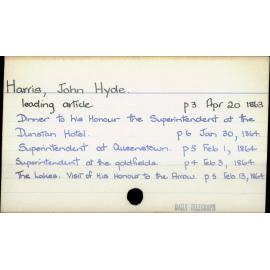 Harris, John Hyde.
leading article p 3 Apr 20 1863
Dinner to his Honour the Superintendent at the
Dunstan Hotel. p 6 Jan 30, 1864.
Superintendent at Queenstown. p 5 Feb 1, 1864
Superintendent at the goldfields. p 4 Feb 3, 1864.
The Lakes. Visit of His Honour to the Arrow. p 5 Feb 13, 1864
DAILY TELEGRAPH